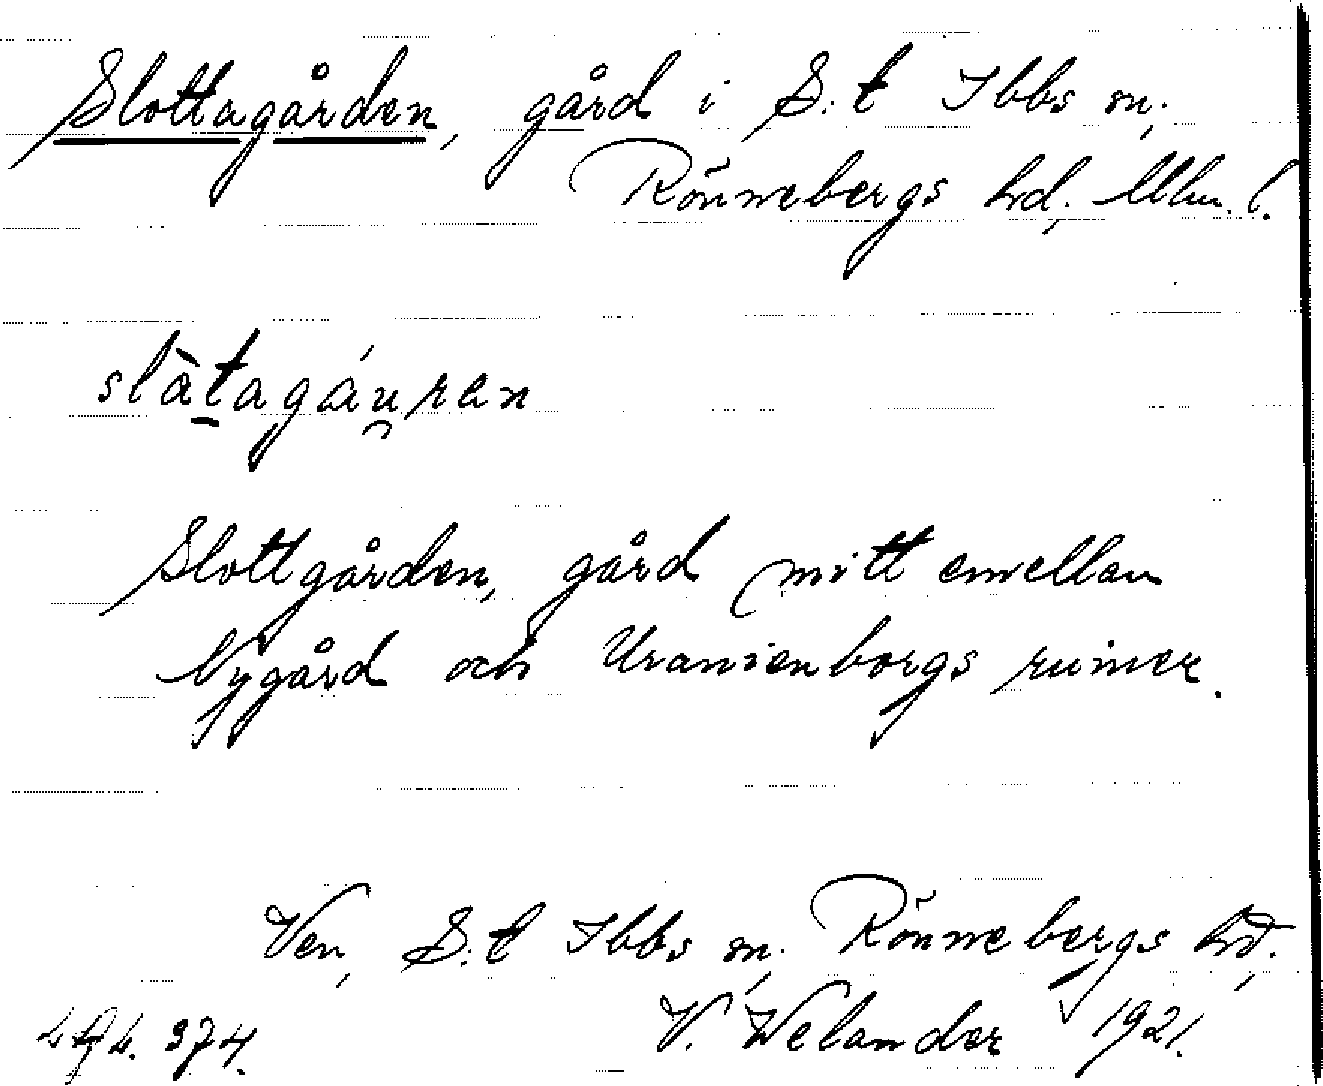 Slottagården, gård i S:t Ibbs sn,
Rönnebergs hd, Mlm. l.
slàtagáu̯ren
Slottgården, gård mitt emellan
Nygård och Uranienborgs ruiner.
Ven, S:t Ibbs sn, Rönnebergs hd,
V. Welander 1921.
374.